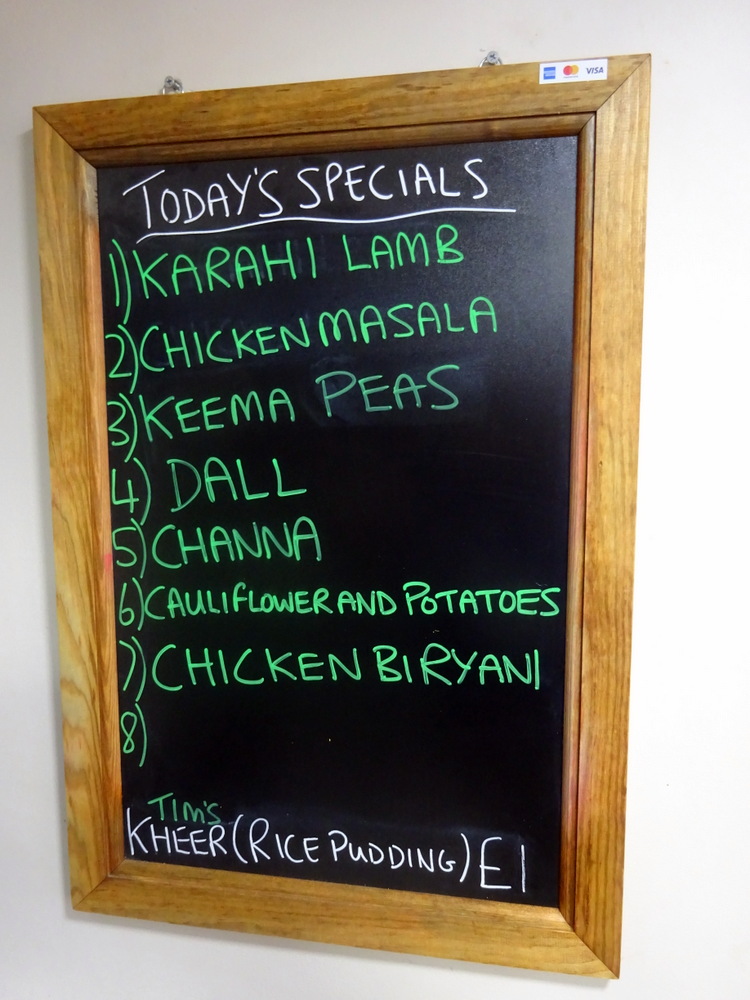 VISA
TODAY'S SPECIALS
1) KARAHI LAMB
2) CHICKEN MASALA
3) KEEMA PEAS
4) DALL
5) CHANNA
6) CAULIFLOWER AND POTATOES
7) CHICKEN BIRYANI
8)
TIM'S
KHEER (RICE PUDDING) £1